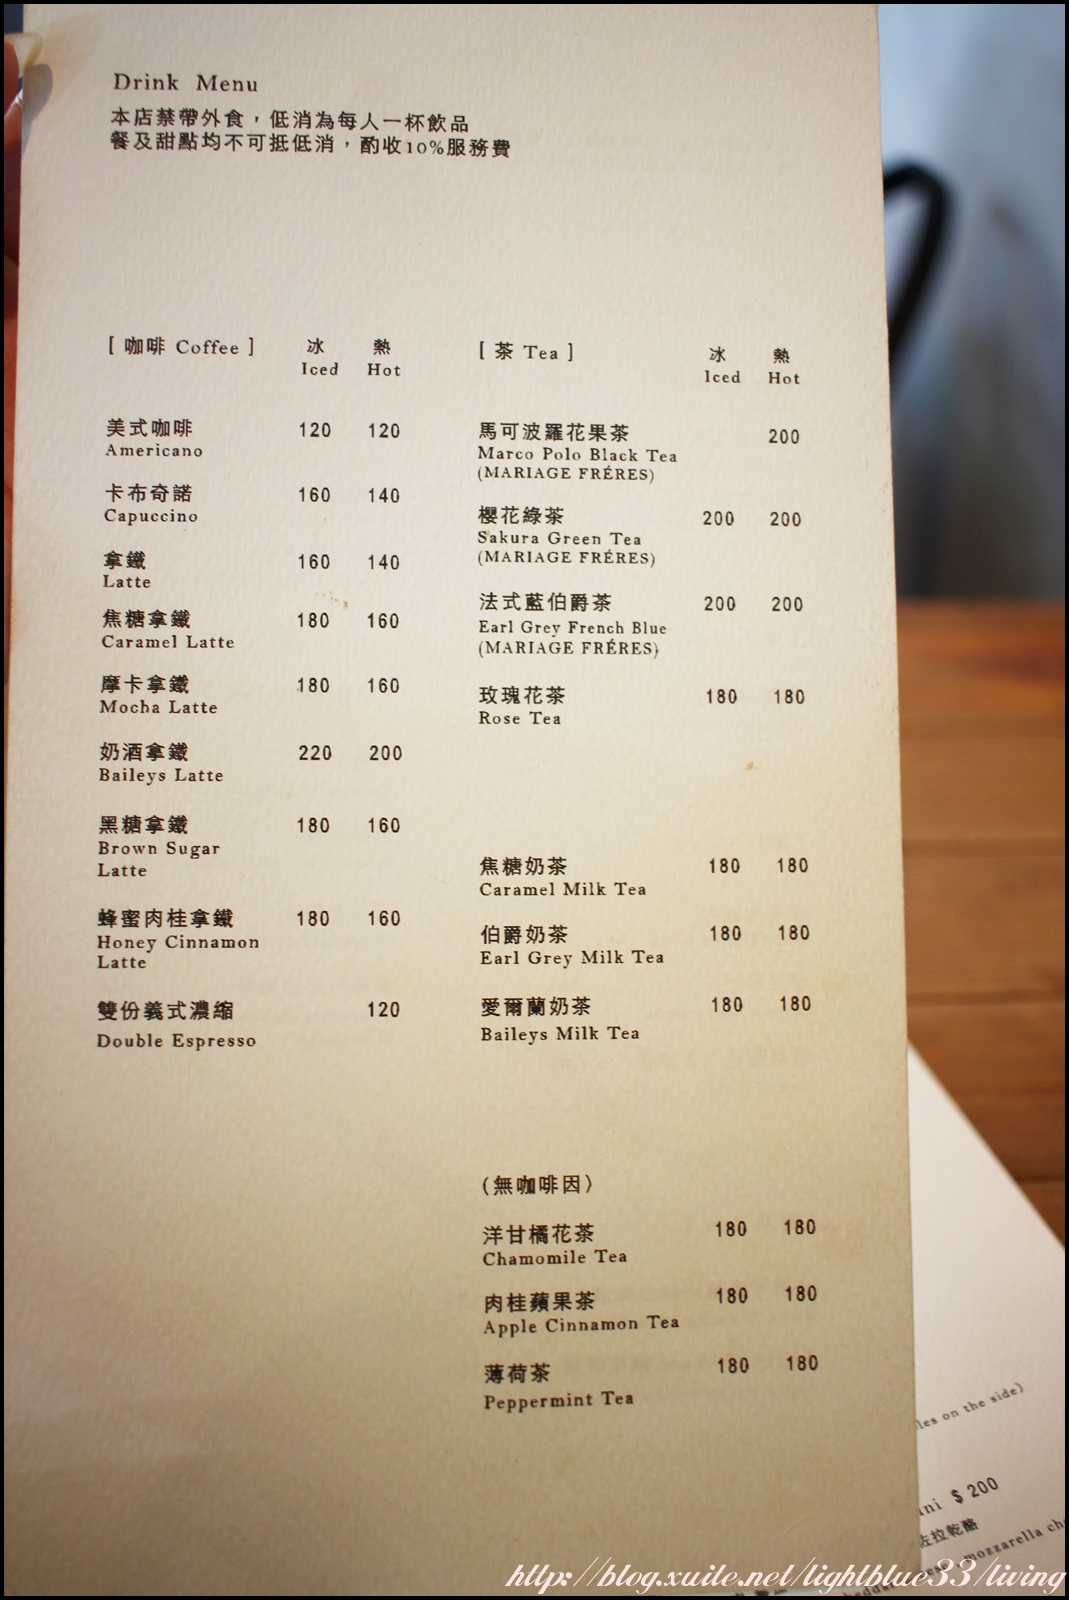 Drink Menu
本店禁帶外食，低消為每人一杯飲品
餐及甜點均不可抵低消，酌收10%服務費
[ 咖啡 Coffee ] 冰 熱
Iced Hot
美式咖啡 120 120
Americano
卡布奇諾 160 140
Capuccino
拿鐵 160 140
Latte
焦糖拿鐵 180 160
Caramel Latte
摩卡拿鐵 180 160
Mocha Latte
奶酒拿鐵 220 200
Baileys Latte
黑糖拿鐵 180 160
Brown Sugar
Latte
蜂蜜肉桂拿鐵 180 160
Honey Cinnamon
Latte
雙份義式濃縮 120
Double Espresso
[ 茶 Tea ] 冰 熱
Iced Hot
馬可波羅花果茶 200
Marco Polo Black Tea
(MARIAGE FRÉRES)
櫻花綠茶 200 200
Sakura Green Tea
(MARIAGE FRÉRES)
法式藍伯爵茶 200 200
Earl Grey French Blue
(MARIAGE FRÉRES)
玫瑰花茶 180 180
Rose Tea
焦糖奶茶 180 180
Caramel Milk Tea
伯爵奶茶 180 180
Earl Grey Milk Tea
愛爾蘭奶茶 180 180
Baileys Milk Tea
(無咖啡因)
洋甘橘花茶 180 180
Chamomile Tea
肉桂蘋果茶 180 180
Apple Cinnamon Tea
薄荷茶 180 180
Peppermint Tea
on the side)
$ 200
拉乾酪
mozzarella
http://blog.xuite.net/lightblue33/living